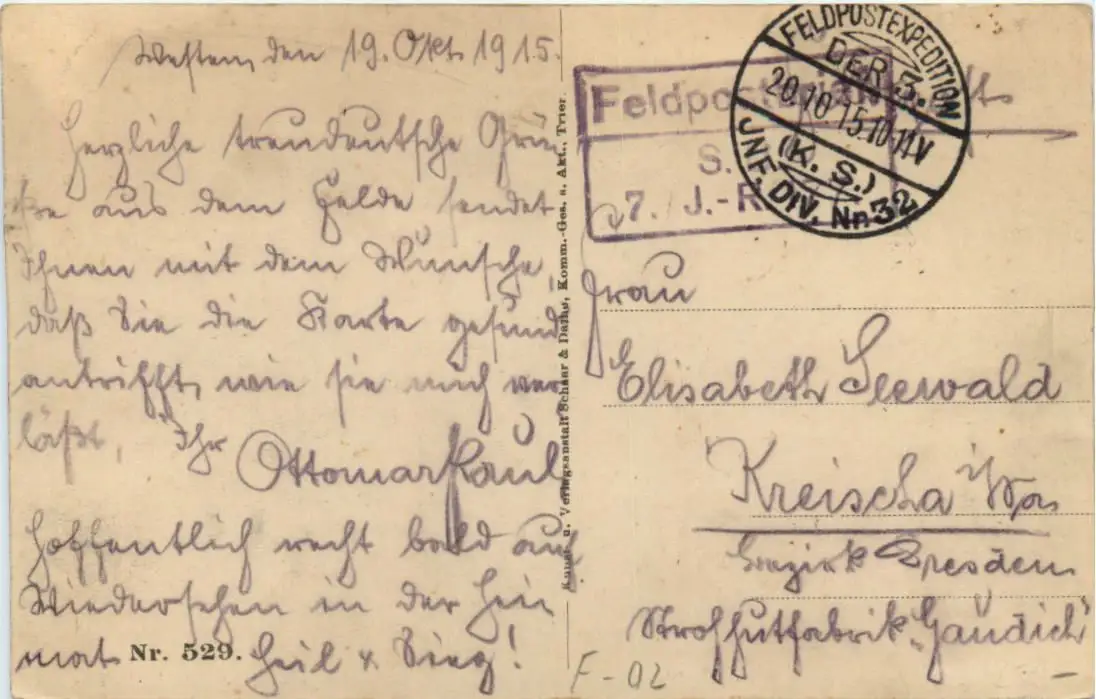 Westen, den 19. Okt. 1915.
Herzliche treudeutsche Grü-
ße aus dem Felde sendet
Ihnen mit dem Wunsche,
daß Sie die Karte gesund
antrifft, wie sie mich ver-
läßt, Ihr
Ottomar Paul
Hoffentlich recht bald auf
Wiedersehen in der Hei-
mat. Heil & Sieg!
Nr. 529.
Kunst- u. Verlagsanstalt Schaar & Dathe, Komm.-Ges. a. Akt., Trier.
Feldpost
S.
7. J.-R
FELDPOSTEXPEDITION
DER 3.
20.10.15.10-11V
(K. S.)
JNF. DIV. Nr. 32
Frau
Elisabeth Seewald
Kreischa
Bezirk Dresden
Strohhutfabrik „Gaudich“
F-02